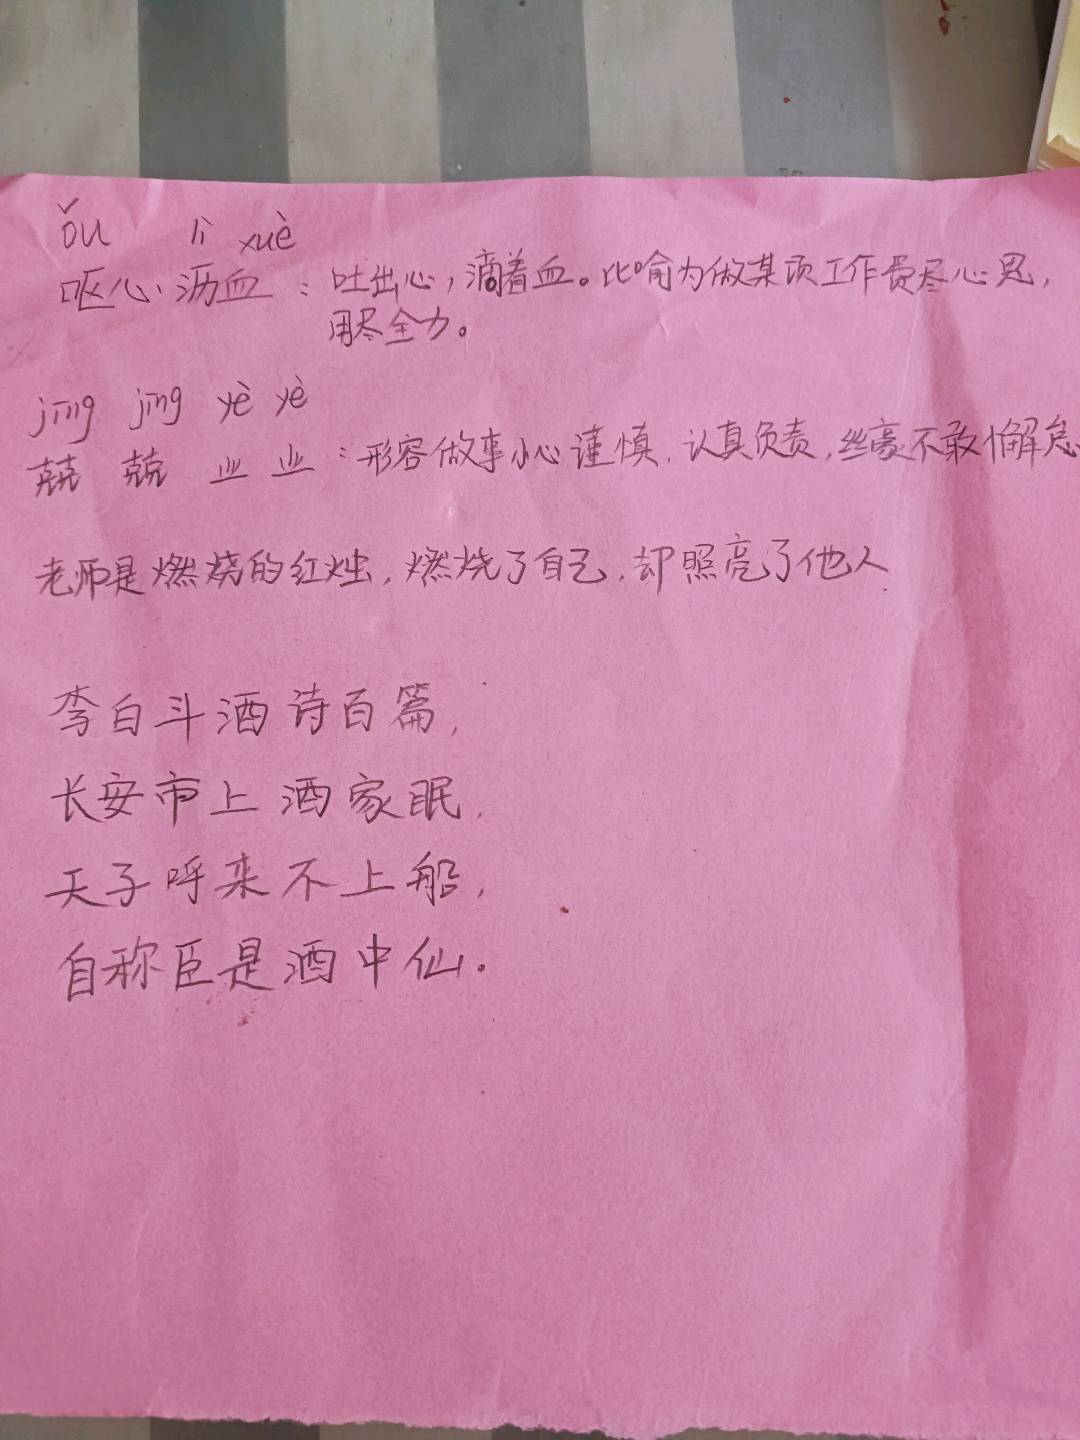 ǒu lì xuè
呕心沥血：吐出心，滴着血。比喻为做某项工作费尽心思，
用尽全力。
jīng jīng yè yè
兢兢业业：形容做事小心谨慎，认真负责，丝毫不敢懈怠
老师是燃烧的红烛，燃烧了自己，却照亮了他人
李白斗酒诗百篇，
长安市上酒家眠，
天子呼来不上船，
自称臣是酒中仙。